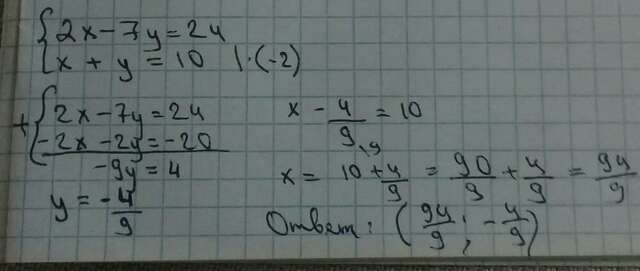 {2x - 7y = 24
{x + y = 10 | · (-2)
+ {2x - 7y = 24
{-2x - 2y = -20
-9y = 4
y = -4/9
x - 4/9 = 10
x = 10 + 4/9 = 90/9 + 4/9 = 94/9
Ответ: (94/9; -4/9)